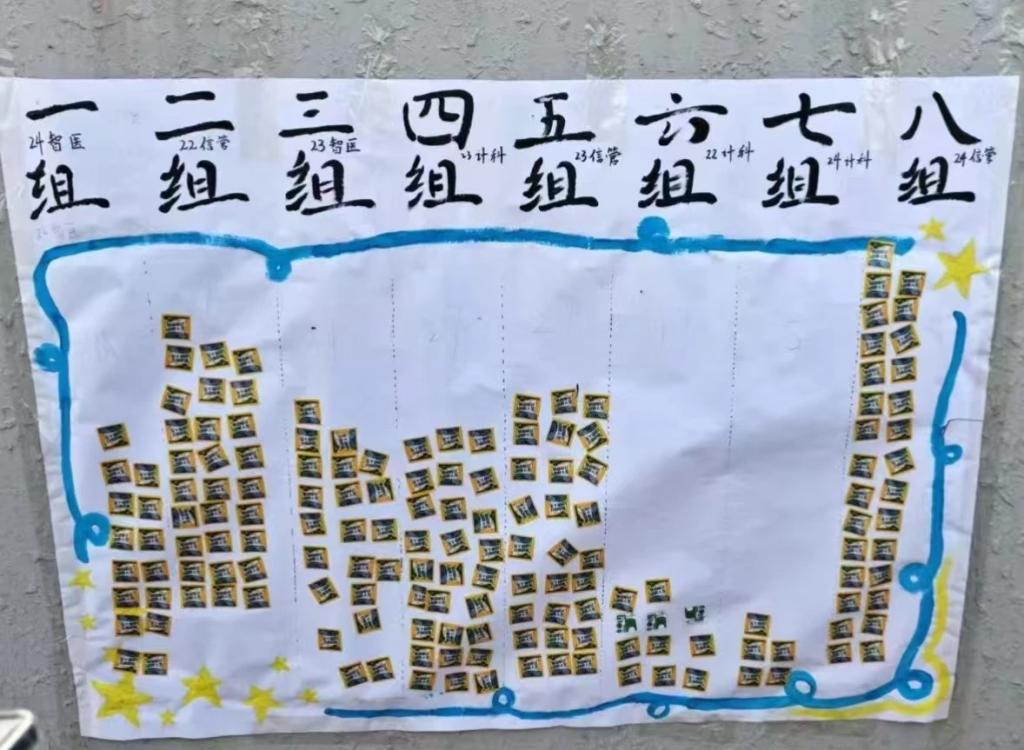 一组
24智医
二组
22信管
三组
23智医
四组
23计科
五组
23信管
六组
22计科
七组
24计科
八组
24信管